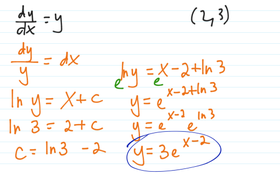 dy/dx = y
(2,3)
dy/y = dx
ln y = x + c
ln 3 = 2 + c
c = ln3 - 2
e^(ln y) = e^(x - 2 + ln 3)
y = e^(x-2+ln3)
y = e^(x-2) e^(ln3)
y = 3e^(x-2)